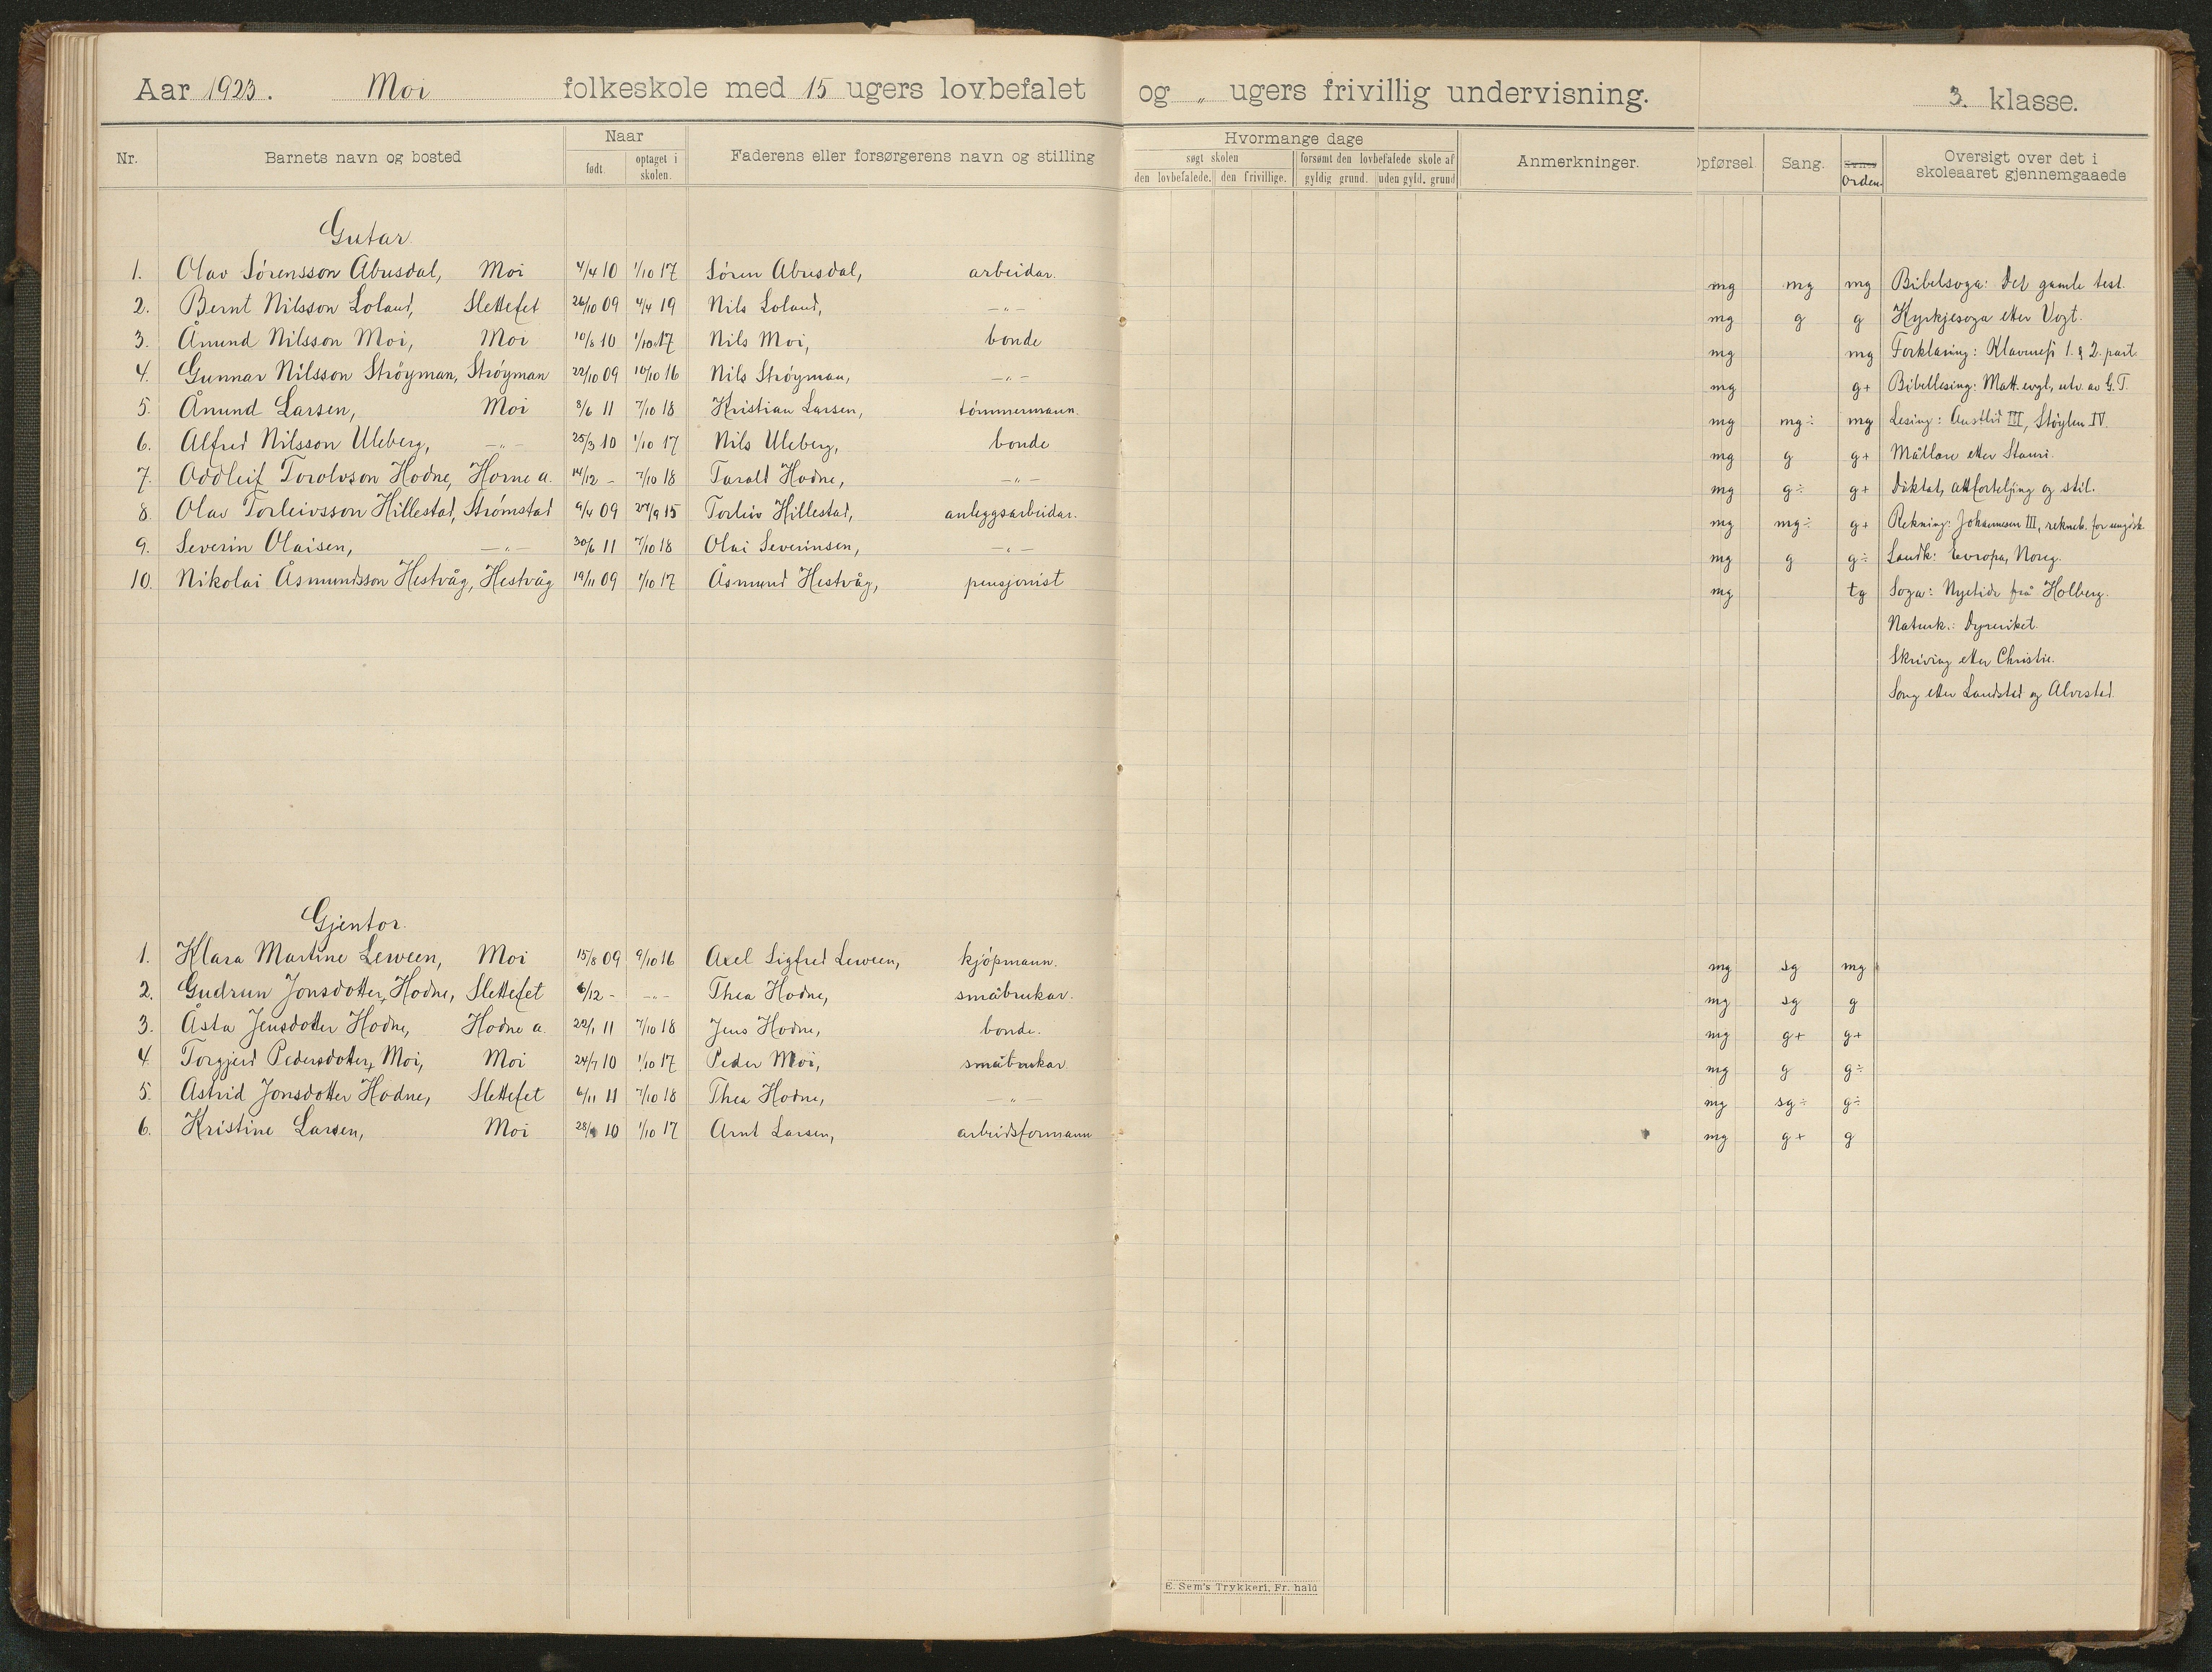 Aar 1923. Moi folkeskole med 15 ugers lovbefalet og „ ugers frivillig undervisning. 3. klasse.
Nr. Barnets navn og bosted Naar født. optaget i skolen. Faderens eller forsørgerens navn og stilling Hvormange dage søgt skolen den lovbefalede. den frivillige. forsømt den lovbefalede skole af gyldig grund. uden gyld. grund Anmerkninger. Opførsel Sang. Orden. Oversigt over det i skoleaaret gjennemgaaede
Gutar.
1. Olav Sørensson Abusdal, Moi 4/4 10 1/10 17 Søren Abusdal, arbeidar. mg mg mg Bibelsoga: Det gamle test.
2. Bernt Nilsson Loland, Slettefet 26/10 09 4/4 19 Nils Loland, —„— mg g g Kyrkjesoga etter Vogt.
3. Åmund Nilsson Moi, Moi 10/8 10 1/10 17 Nils Moi, bonde mg mg Forklaring: Klaveness 1. & 2. part.
4. Gunnar Nilsson Strøyman, Strøyman 22/10 09 10/10 16 Nils Strøyman, —„— mg g+ Bibellesing: Matt. evgl., utv. av G.T.
5. Åmund Larsen, Moi 8/6 11 7/10 18 Kristian Larsen, tømmermann. mg mg÷ mg Lesing: Austlid III, Støylen IV.
6. Alfred Nilsson Uleberg, —„— 25/3 10 1/10 17 Nils Uleberg, bonde mg g g+ Mållære etter Stauri.
7. Oddleif Torolvson Hodne, Horne a. 14/12 - 7/10 18 Tarald Hodne, —„— mg g÷ g+ Diktat, attforteljing og stil.
8. Olav Torleivsson Hillestad, Strømstad 9/4 09 27/9 15 Torleiv Hillestad, anleggsarbeidar. mg mg÷ g+ Rekning: Johannesen III, rekneb. for
9. Severin Olaisen, —„— 30/6 11 7/10 18 Olai Severinsen, —„— mg g g÷ Landk: Evropa, Noreg.
10. Nikolai Åsmundsson Hestvåg, Hestvåg 19/11 09 1/10 17 Åsmund Hestvåg, pensjonist mg tg Soga: Nyetida frå Holberg.
Naturk.: Dyreriket.
Skriving etter Christie.
Song etter Landstad og Alvestad.
Gjentor.
1. Klara Martine Leween, Moi 15/8 09 9/10 16 Axel Sigfred Leween, kjøpmann. mg sg mg
2. Gudrun Jonsdotter Hodne, Slettefet 6/12 - -„- Thea Hodne, småbrukar. mg sg g
3. Åsta Jensdotter Hodne, Hodne a. 22/1 11 7/10 18 Jens Hodne, bonde. mg g+ g+
4. Torgjerd Pedersdotter Moi, Moi 24/7 10 1/10 17 Peder Moi, småbrukar mg g g÷
5. Astrid Jonsdotter Hodne, Slettefet 6/11 11 7/10 18 Thea Hodne, —„— mg sg÷ g÷
6. Kristine Larsen, Moi 10 1/10 17 Arnt Larsen, arbeidsformann mg g+ g
E. Sem's Trykkeri, Fr. hald